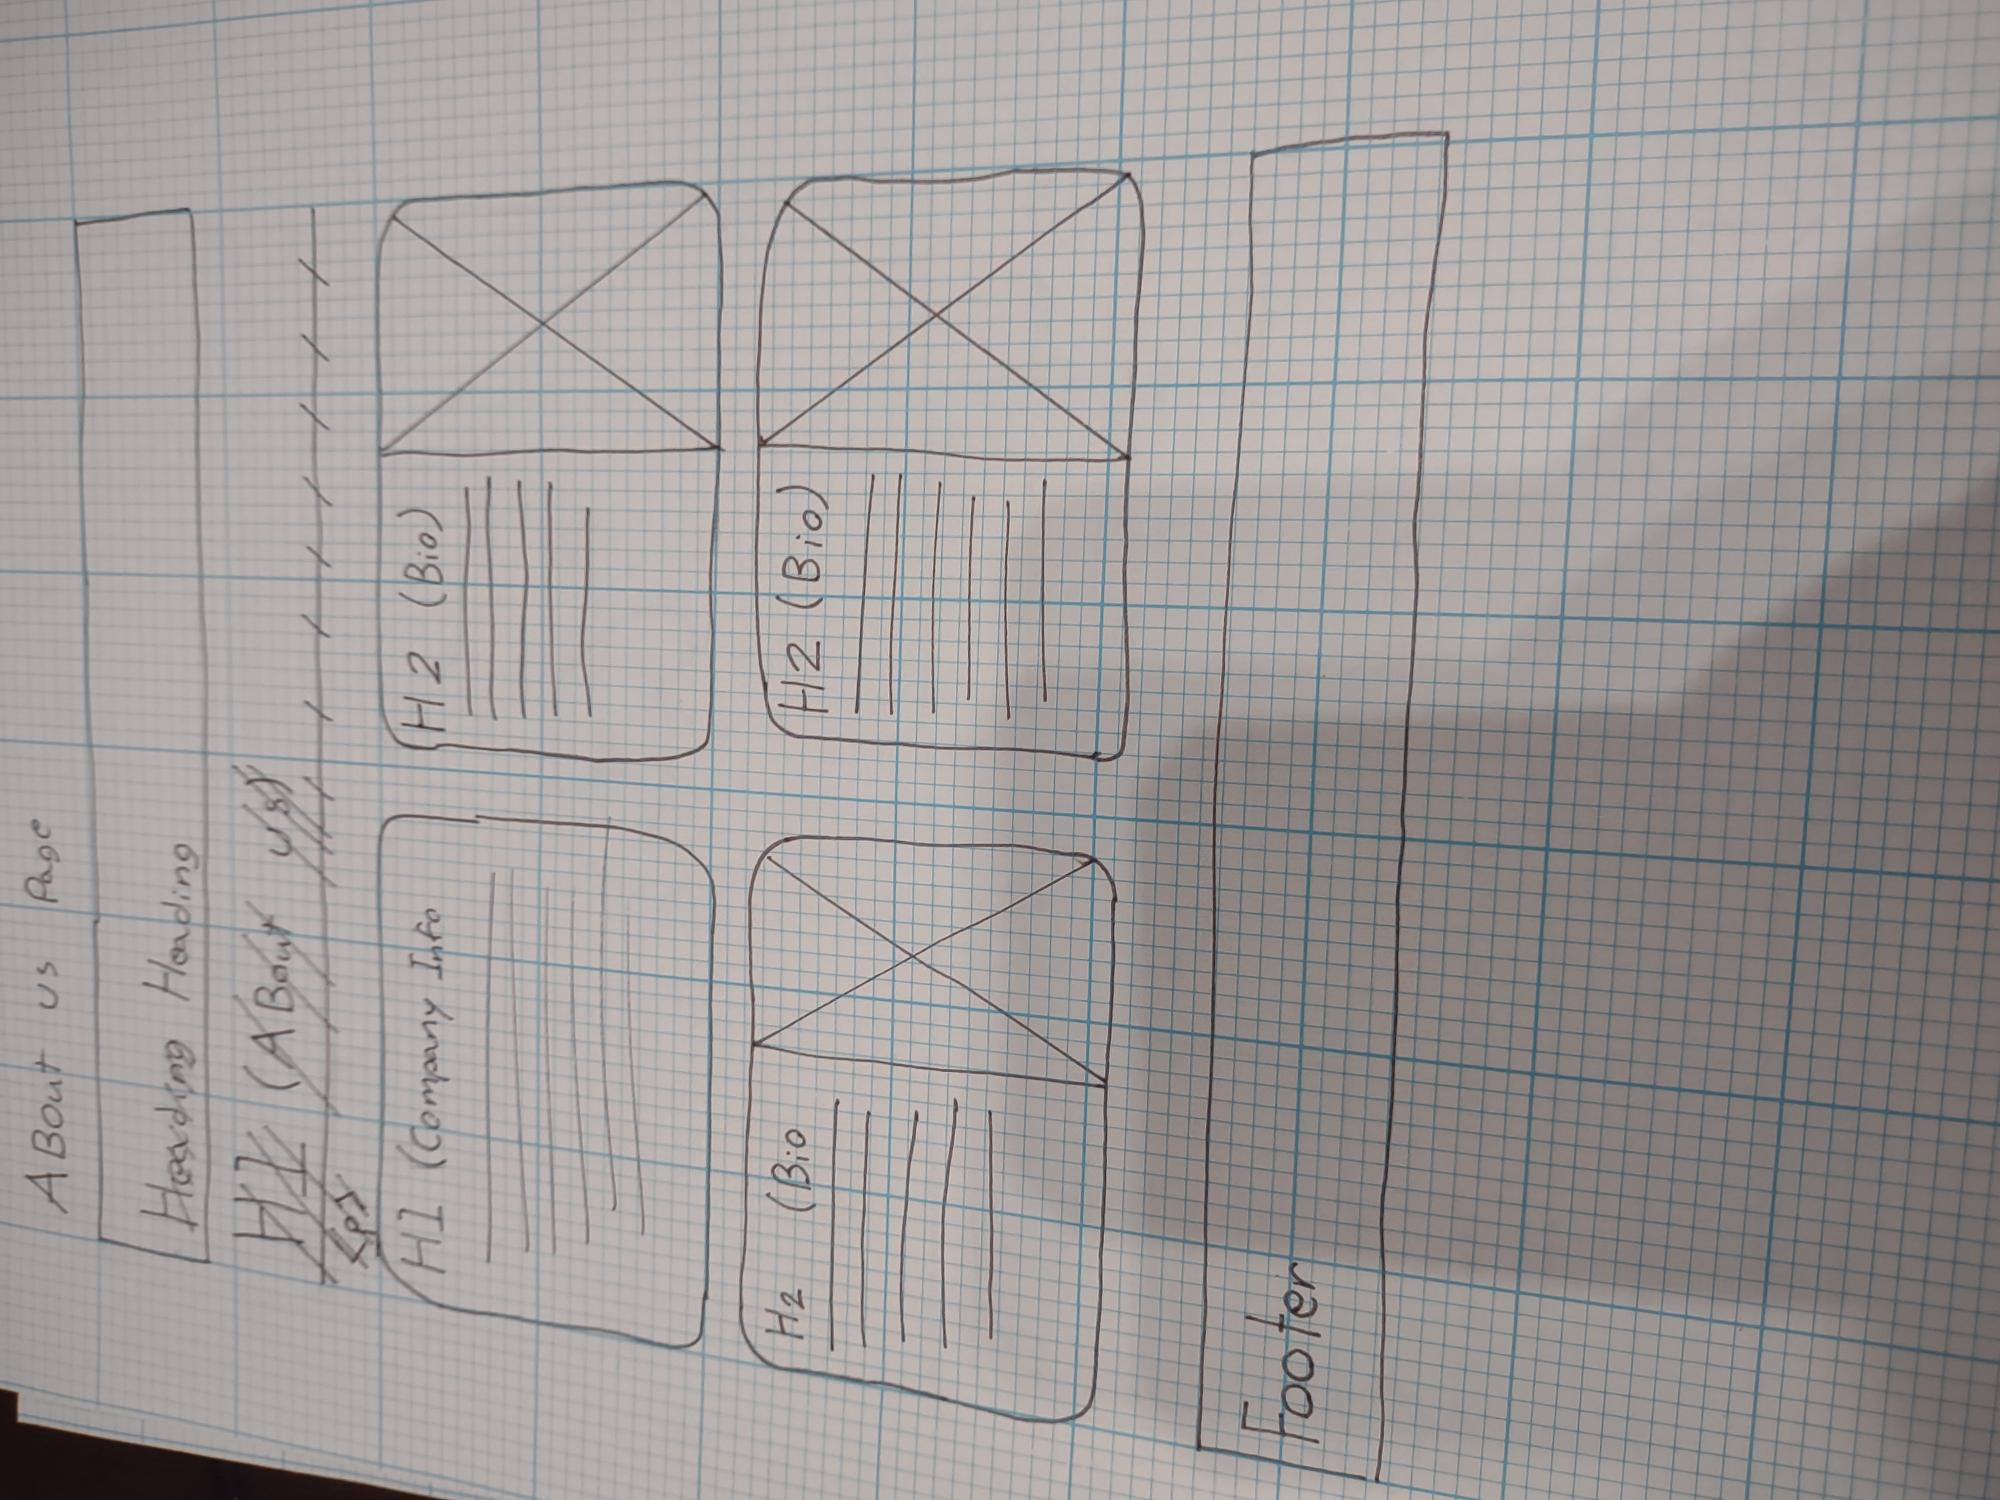 ABout us Page
Heading Heading
H1 (ABout us)
<p>
H1 (Company Info
H2 (Bio)
H2 (Bio
H2 (Bio)
Footer